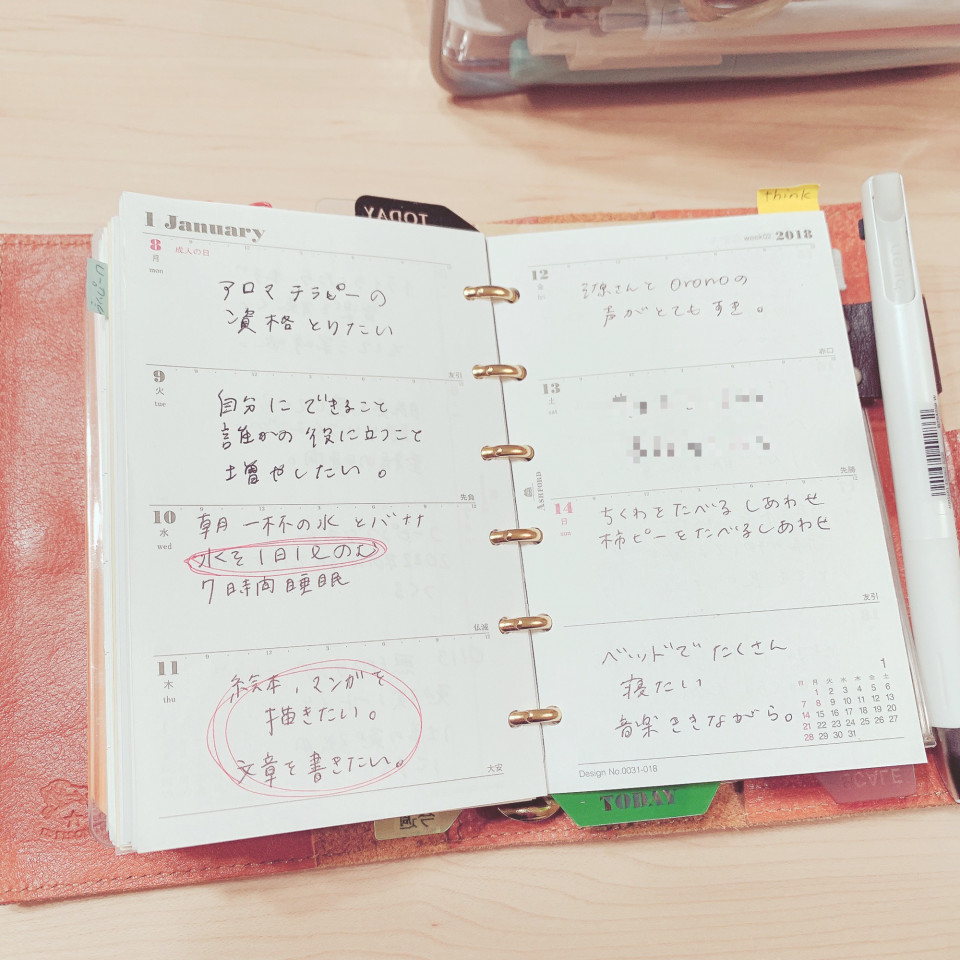 1 January
8
月
mon
成人の日
アロマテラピーの
資格とりたい
友引
9
火
tue
自分にできること
誰かの役に立つこと
増やしたい。
先負
10
水
wed
朝一杯の水とバナナ
水を1日1ℓのむ
7時間睡眠
仏滅
11
木
thu
絵本、マンガを
描きたい。
文章を書きたい。
大安
TODAY
think
2018
12
金
fri
さんとoronoの
声がとてもすき。
赤口
13
土
sat
先勝
Ashford
14
日
sun
ちくわをたべるしあわせ
柿ピーをたべるしあわせ
友引
ベッドでたくさん
寝たい
音楽ききながら。
1
日 月 火 水 木 金 土
1 2 3 4 5 6
7 8 9 10 11 12 13
14 15 16 17 18 19 20
21 22 23 24 25 26 27
28 29 30 31
Design No.0031-018
TODAY